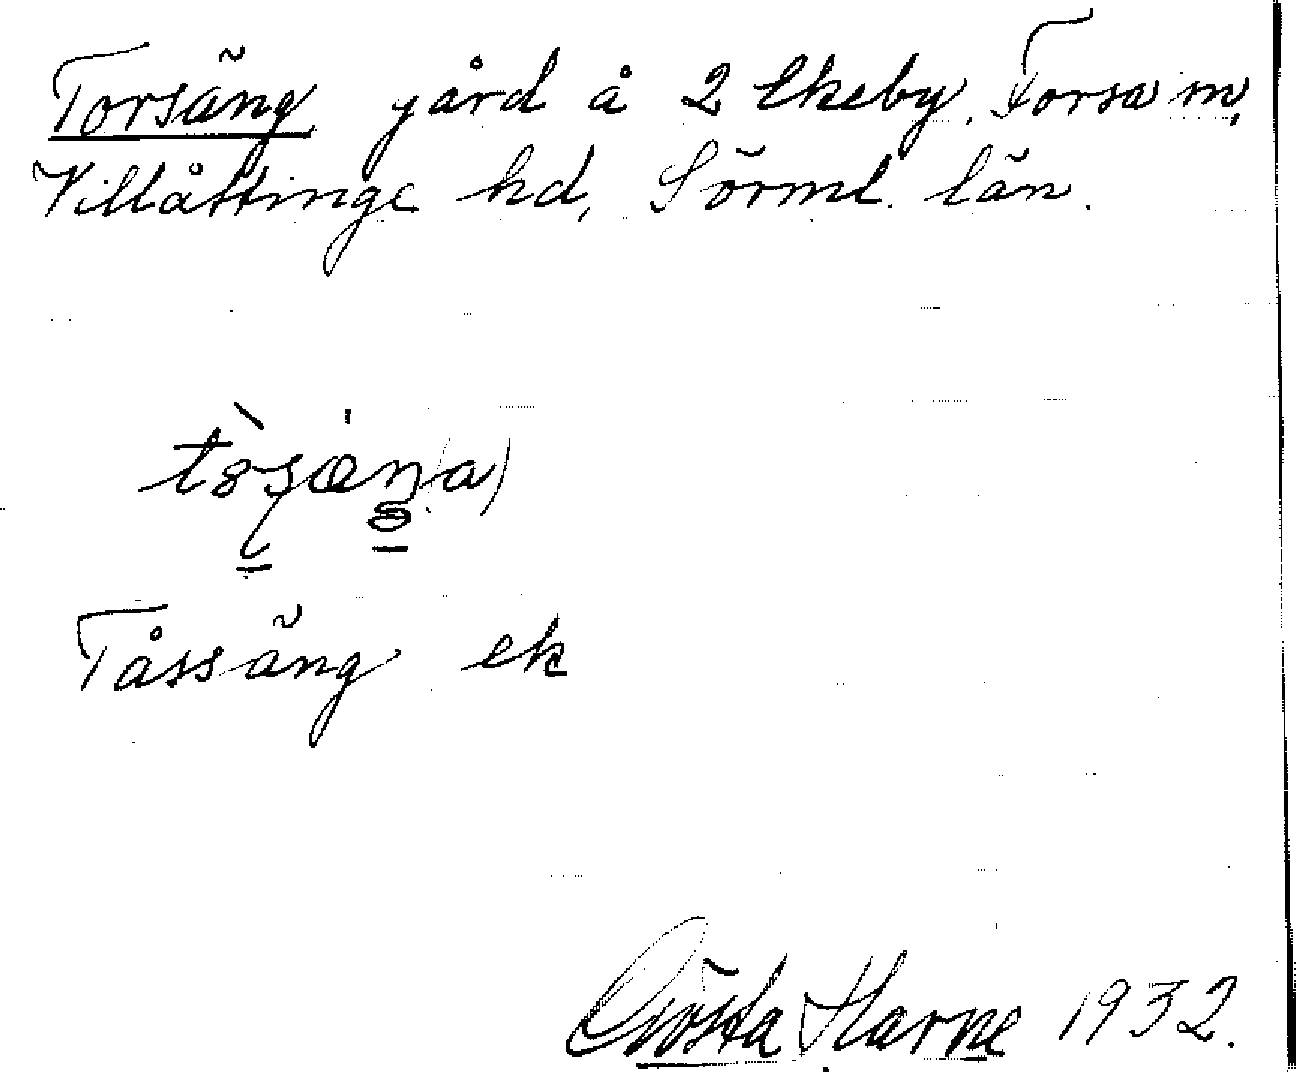 Torsäng gård å 2 Ekeby. Forsa sn,
Villåttinge hd, Sörml. län.
Tåssäng ek
Gösta Harne 1932.